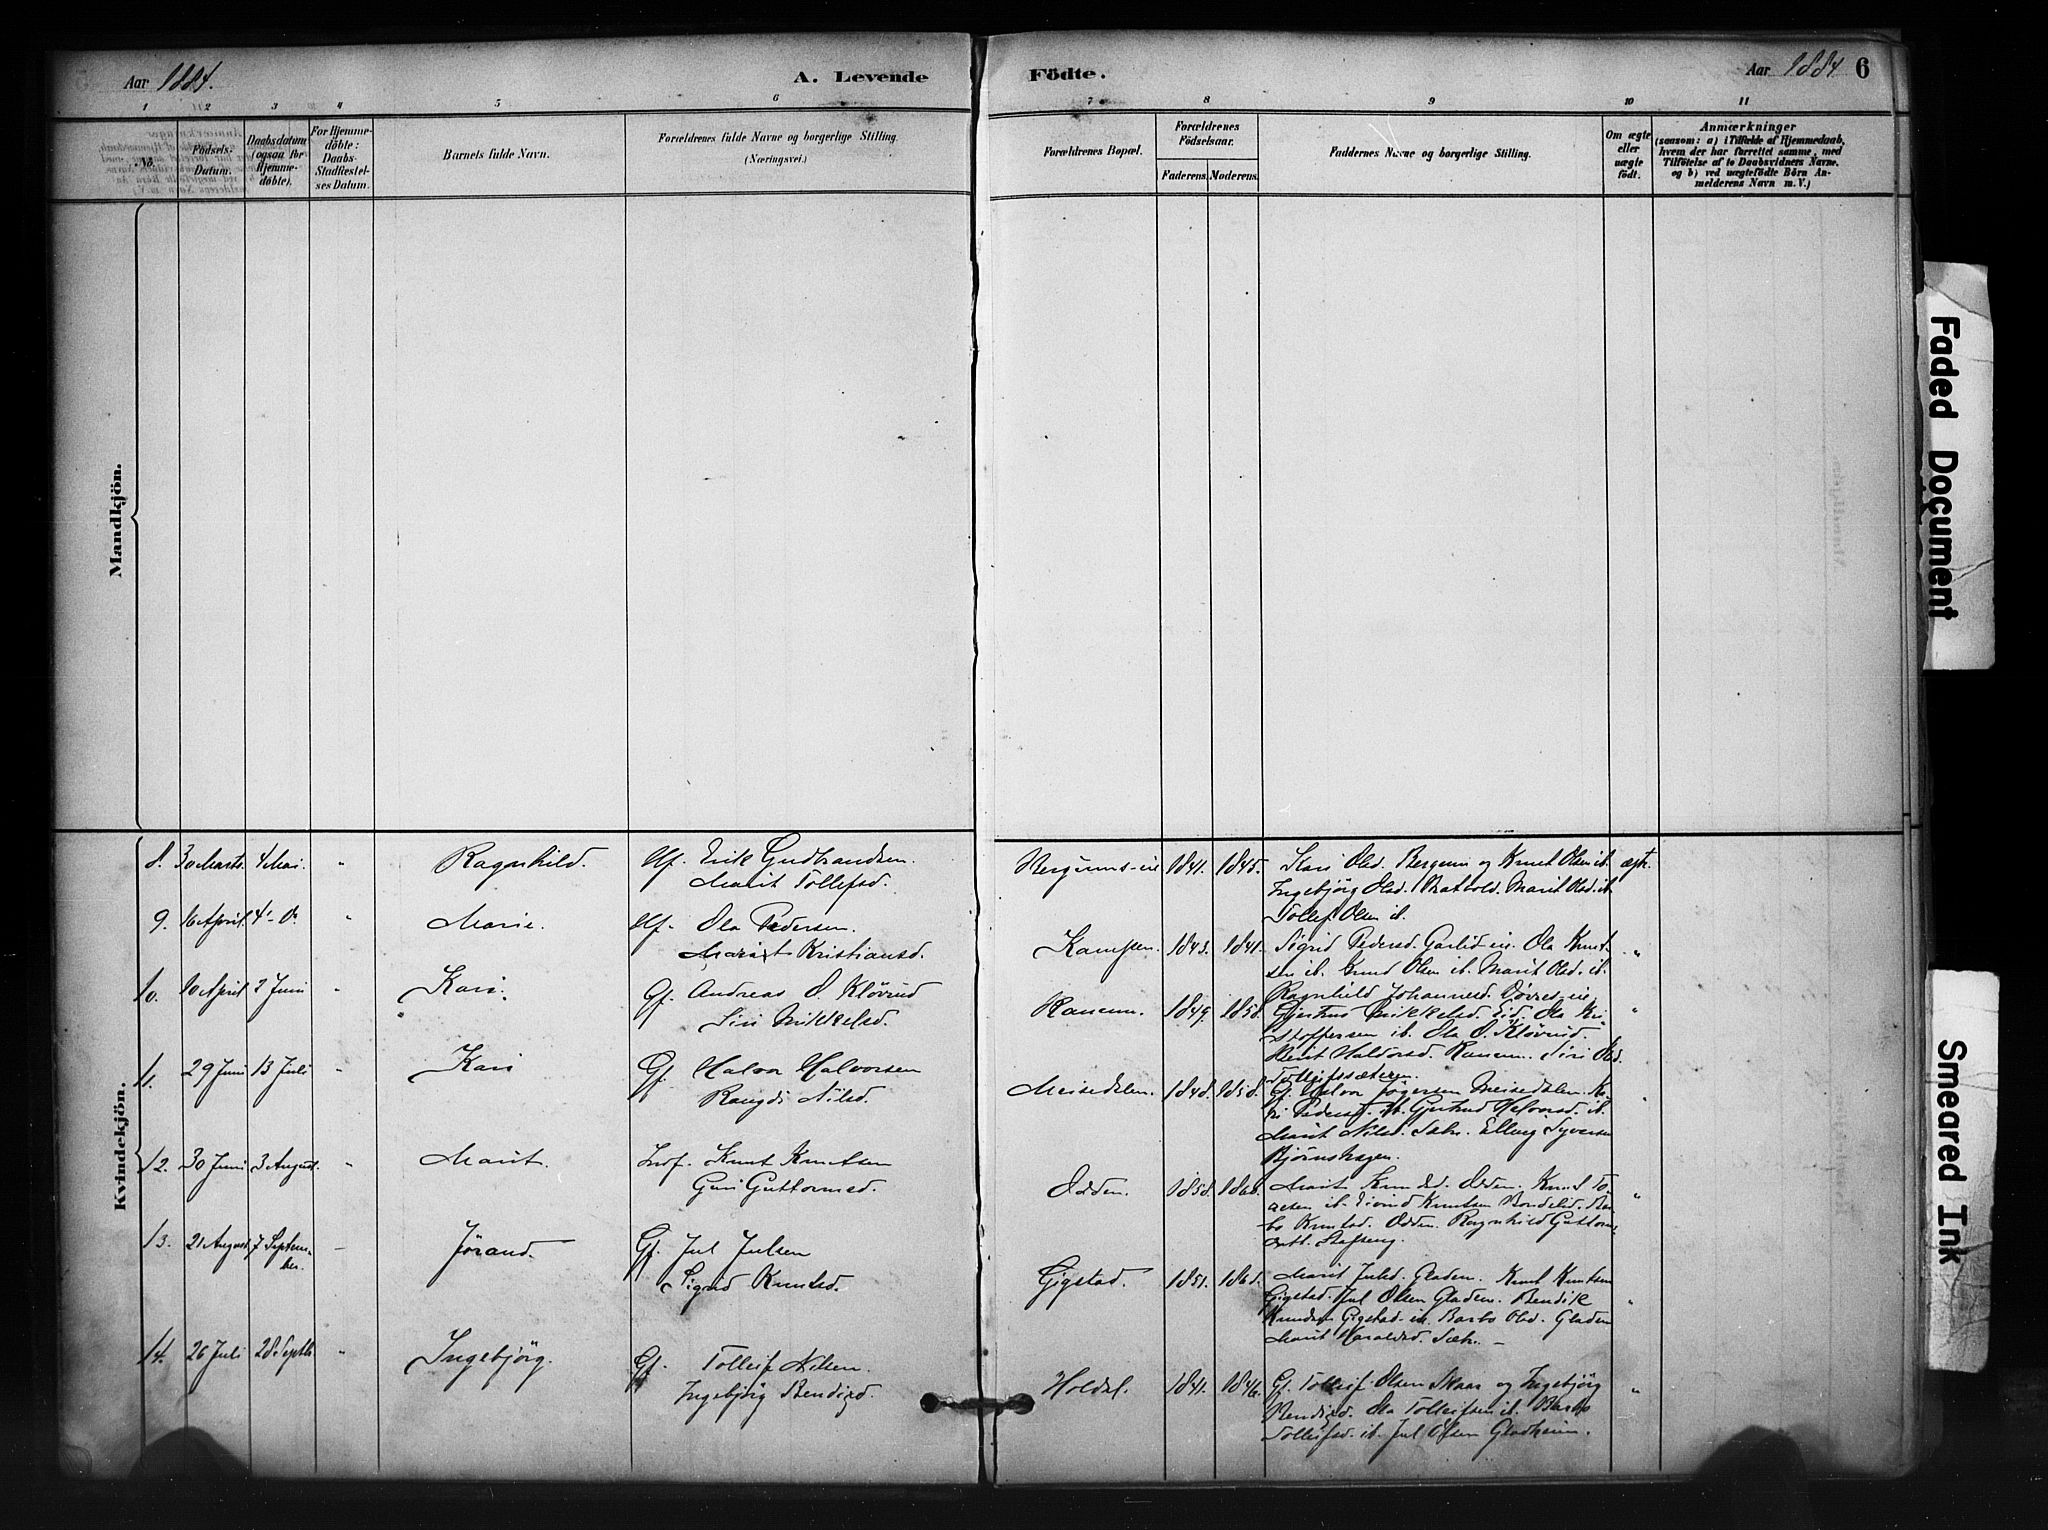 Aar 1884.
A. Levende
Födte.
Aar 1884
6
1 2 3 4 5 6 7 8 9 10 11
No.
Födsels-
Datum.
Daabsdatum
(ogsaa for
Hjemme-
döbte).
For Hjemme-
döbte:
Daabs-
Stadfæstel-
ses Datum.
Barnets fulde Navn.
Forældrenes fulde Navne og borgerlige Stilling
(Næringsvei.)
Forældrenes Bopæl.
Forældrenes
Födselsaar.
Faderens. Moderens.
Faddernes Navne og borgerlige Stilling.
Om ægte
eller
uægte
födt.
Anmærkninger
(saasom: a) i Tilfælde af Hjemmedaab,
hvem der har forrettet samme, med
Tilföielse af to Daabsvidners Navne.
og b) ved uægtefödte Börn An-
melderens Navn m. V.)
Mandkjön.
Kvindekjön.
8. 30 Marts. 4 Mai. " Ragnhild. Hf. Erik Gudbrandsen.
Marit Tollefsd.
Bergums-eie 1841. 1845. Kari Olsd. Bergum og Knut Olsen ib. ægte.
Ingebjörg Olsd. Marit Olsd. ib.
Tollef Olsen ib.
9. 16 April. 4 - D. " Marie. Hf. Ola Pedersen.
Marit Kristiansd.
Kampen. 1843. 1841. Sigrid Pedersd. Garlid eie. Ola Knut- "
sen ib. Knud Olsen ib. Marit Olsd. ib.
Ragnhild Johannesd.
10. 10 April 2 Juni " Kari. Gf. Andreas O. Klövrud
Siri Mikkelsd.
Ranum. 1849. 1858. Gjertrud Mikkelsd. Eid. Ola Kri- "
stoffersen ib. Ola O. Klövrud.
Berit Haldorsd. Ranum. Siri Olsd.
Tollefssæteren.
11. 29 Juni 13 Juli " Kari Gf. Halvor Halvorsen
Rangdi Nilsd.
Meisedalen. 1848. 1858. Gf. Halvor Jögersen Meisedalen. Ka- "
ri Pedersd. ib. Gjertrud Halvorsd. ib.
Marit Nilsd. Sæte. Elling Syversen
Björnshagen.
12. 30 Juni 3 August. " Marit. Indf. Knut Knutsen
Guri Guttormsd.
Odden. 1858. 1860. Marit Knudsd. Odden. Knut To- "
resen ib. Eivind Knutsen Bondelid. Bar-
bo Knutsd. Odden. Ragnhild Guttorms-
datt.
13. 21 August. 7 Septem-
ber. - Jörand. Gf. Jul Julsen
Sigrid Knutsd.
Gigstad. 1851. 1860. Marit Julsd. Gladem. Knut Knutsen
Gigstad. Jul Olsen Gladem. Bendik "
Knudsen Gigstad-eie. Barbo Olsd. Gladem
Marit Haraldsd. Sæte. -
14. 26 Juli 28 Septb. " Ingebjörg. Gf. Tolleif Nilsen.
Ingebjörg Bendixd.
Holdal. 1841. 1846. Gf. Tolleif Olsen Skaar og Ingebjörg "
Bendixd. Ola Tolleifsen ib. Barbo
Tolleifsd. ib. Jul Olsen Gladheim.
Faded Document
Smeared Ink